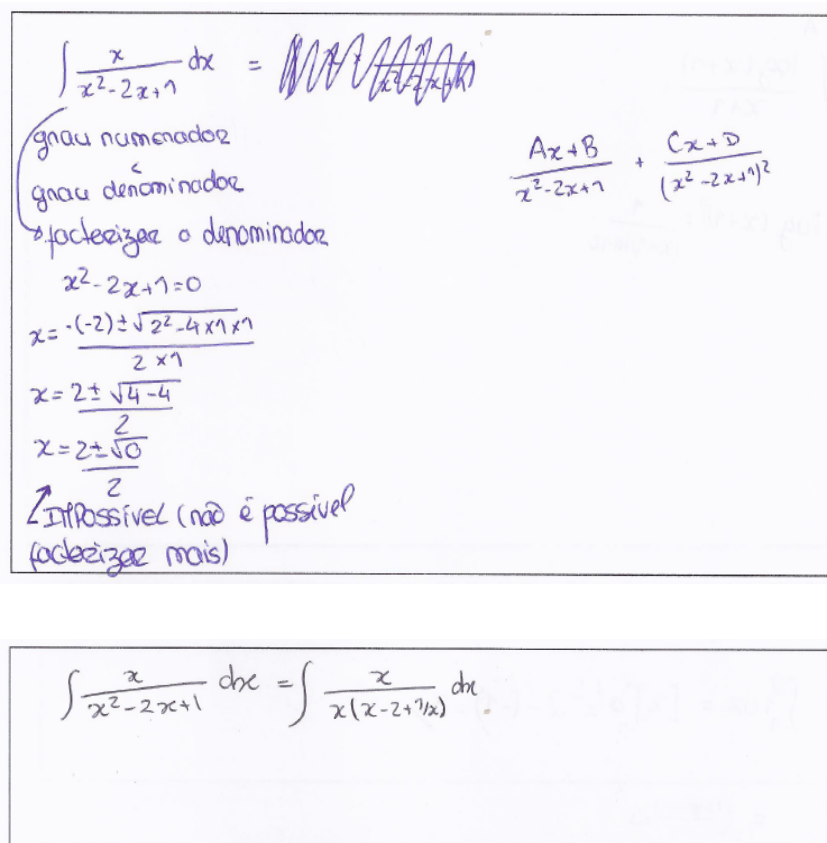 ∫ x/(x²-2x+1) dx =
grau numerador
<
grau denominador
factorizar o denominador
x²-2x+1=0
x = (-(-2) ± √(2²-4×1×1))/(2×1)
x = (2 ± √(4-4))/2
x = (2 ± √0)/2
Impossível (não é possível
factorizar mais)
(Ax+B)/(x²-2x+1) + (Cx+D)/(x²-2x+1)²
∫ x/(x²-2x+1) dx = ∫ x/(x(x-2+1/x)) dx